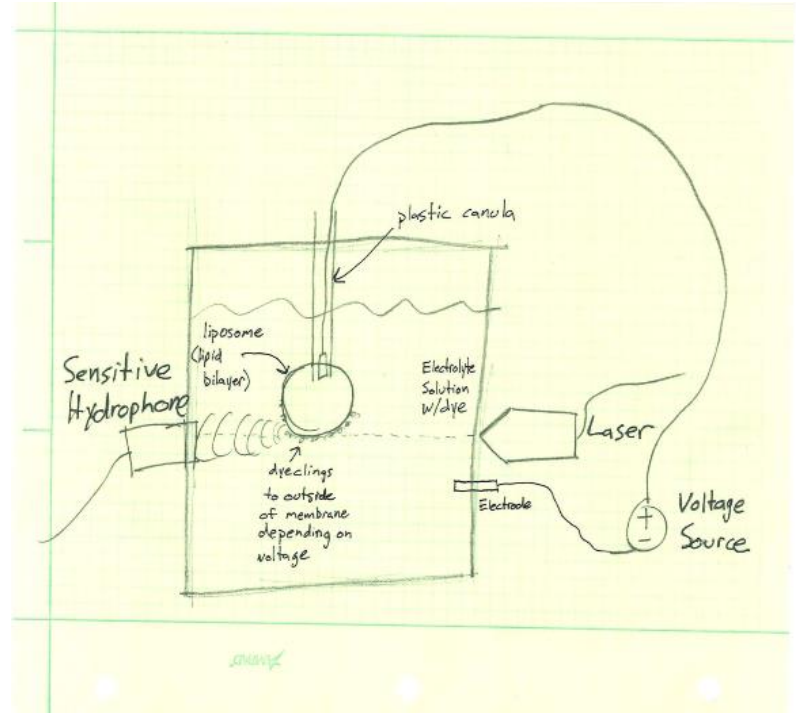 plastic canula
liposome
(lipid
bilayer)
Sensitive
Hydrophone
Electrolyte
Solution
w/dye
Laser
dye clings
to outside
of membrane
depending on
voltage
Electrode
+
-
Voltage
Source